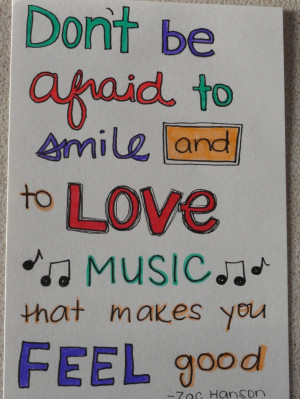 Don't be
afraid to
smile and
to LOVE
MUSIC
that makes you
FEEL good
-Zac Hanson